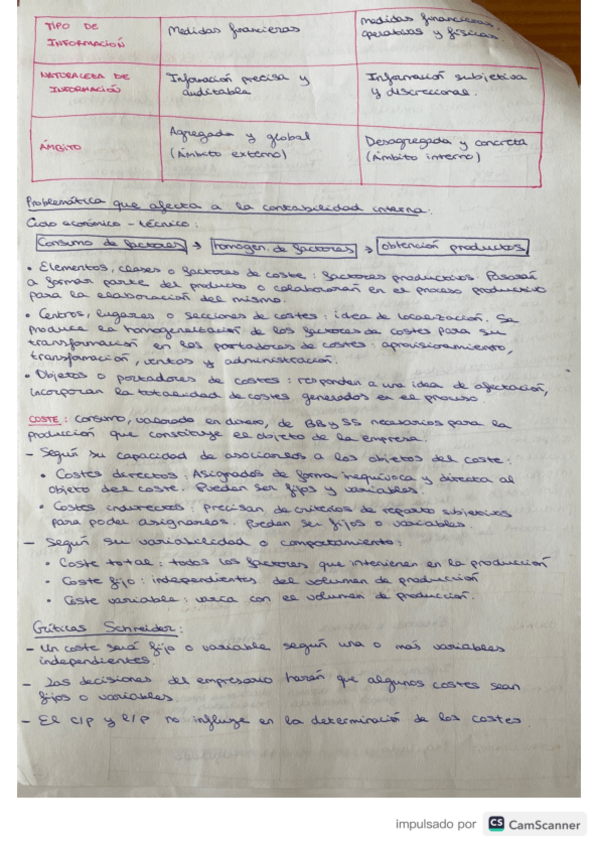 TIPO DE INFORMACIÓN | Medidas financieras | Medidas financieras, operativas y físicas
NATURALEZA DE INFORMACIÓN | Información precisa y auditable | Información subjetiva y discrecional.
ÁMBITO | Agregada y global (Ámbito externo) | Desagregada y concreta (Ámbito interno)
Problemática que afecta a la contabilidad interna.
Ciclo económico - técnico:
Consumo de factores → homogen. de factores → obtención productos
• Elementos, clases o factores de coste: factores productivos. Pasarán
a formar parte del producto o colaborarán en el proceso productivo
para la elaboración del mismo.
• Centros, lugares o secciones de costes: idea de localización. Se
produce la homogeneización de los factores de costes para su
transformación en los portadores de costes: aprovisionamiento,
transformación, ventas y administración.
• Objetos o portadores de costes: responden a una idea de afectación,
incorporan la totalidad de costes generados en el proceso.
COSTE: Consumo, valorado en dinero, de BB y SS necesarios para la
producción que constituye el objeto de la empresa.
- Según su capacidad de asociarlos a los objetos del coste:
• Costes directos: Asignados de forma inequívoca y directa al
objeto del coste. Pueden ser fijos y variables.
• Costes indirectos: precisan de criterios de reparto subjetivos
para poder asignarlos. Pueden ser fijos o variables.
- Según su variabilidad o comportamiento:
• Coste total: todos los factores que intervienen en la producción
• Coste fijo: independientes del volumen de producción
• Coste variable: varía con el volumen de producción.
Críticas Schneider:
- Un coste será fijo o variable según una o más variables
independientes.
- Las decisiones del empresario harán que algunos costes sean
fijos o variables.
- El C/P y L/P no influye en la determinació de los costes.
impulsado por CS CamScanner